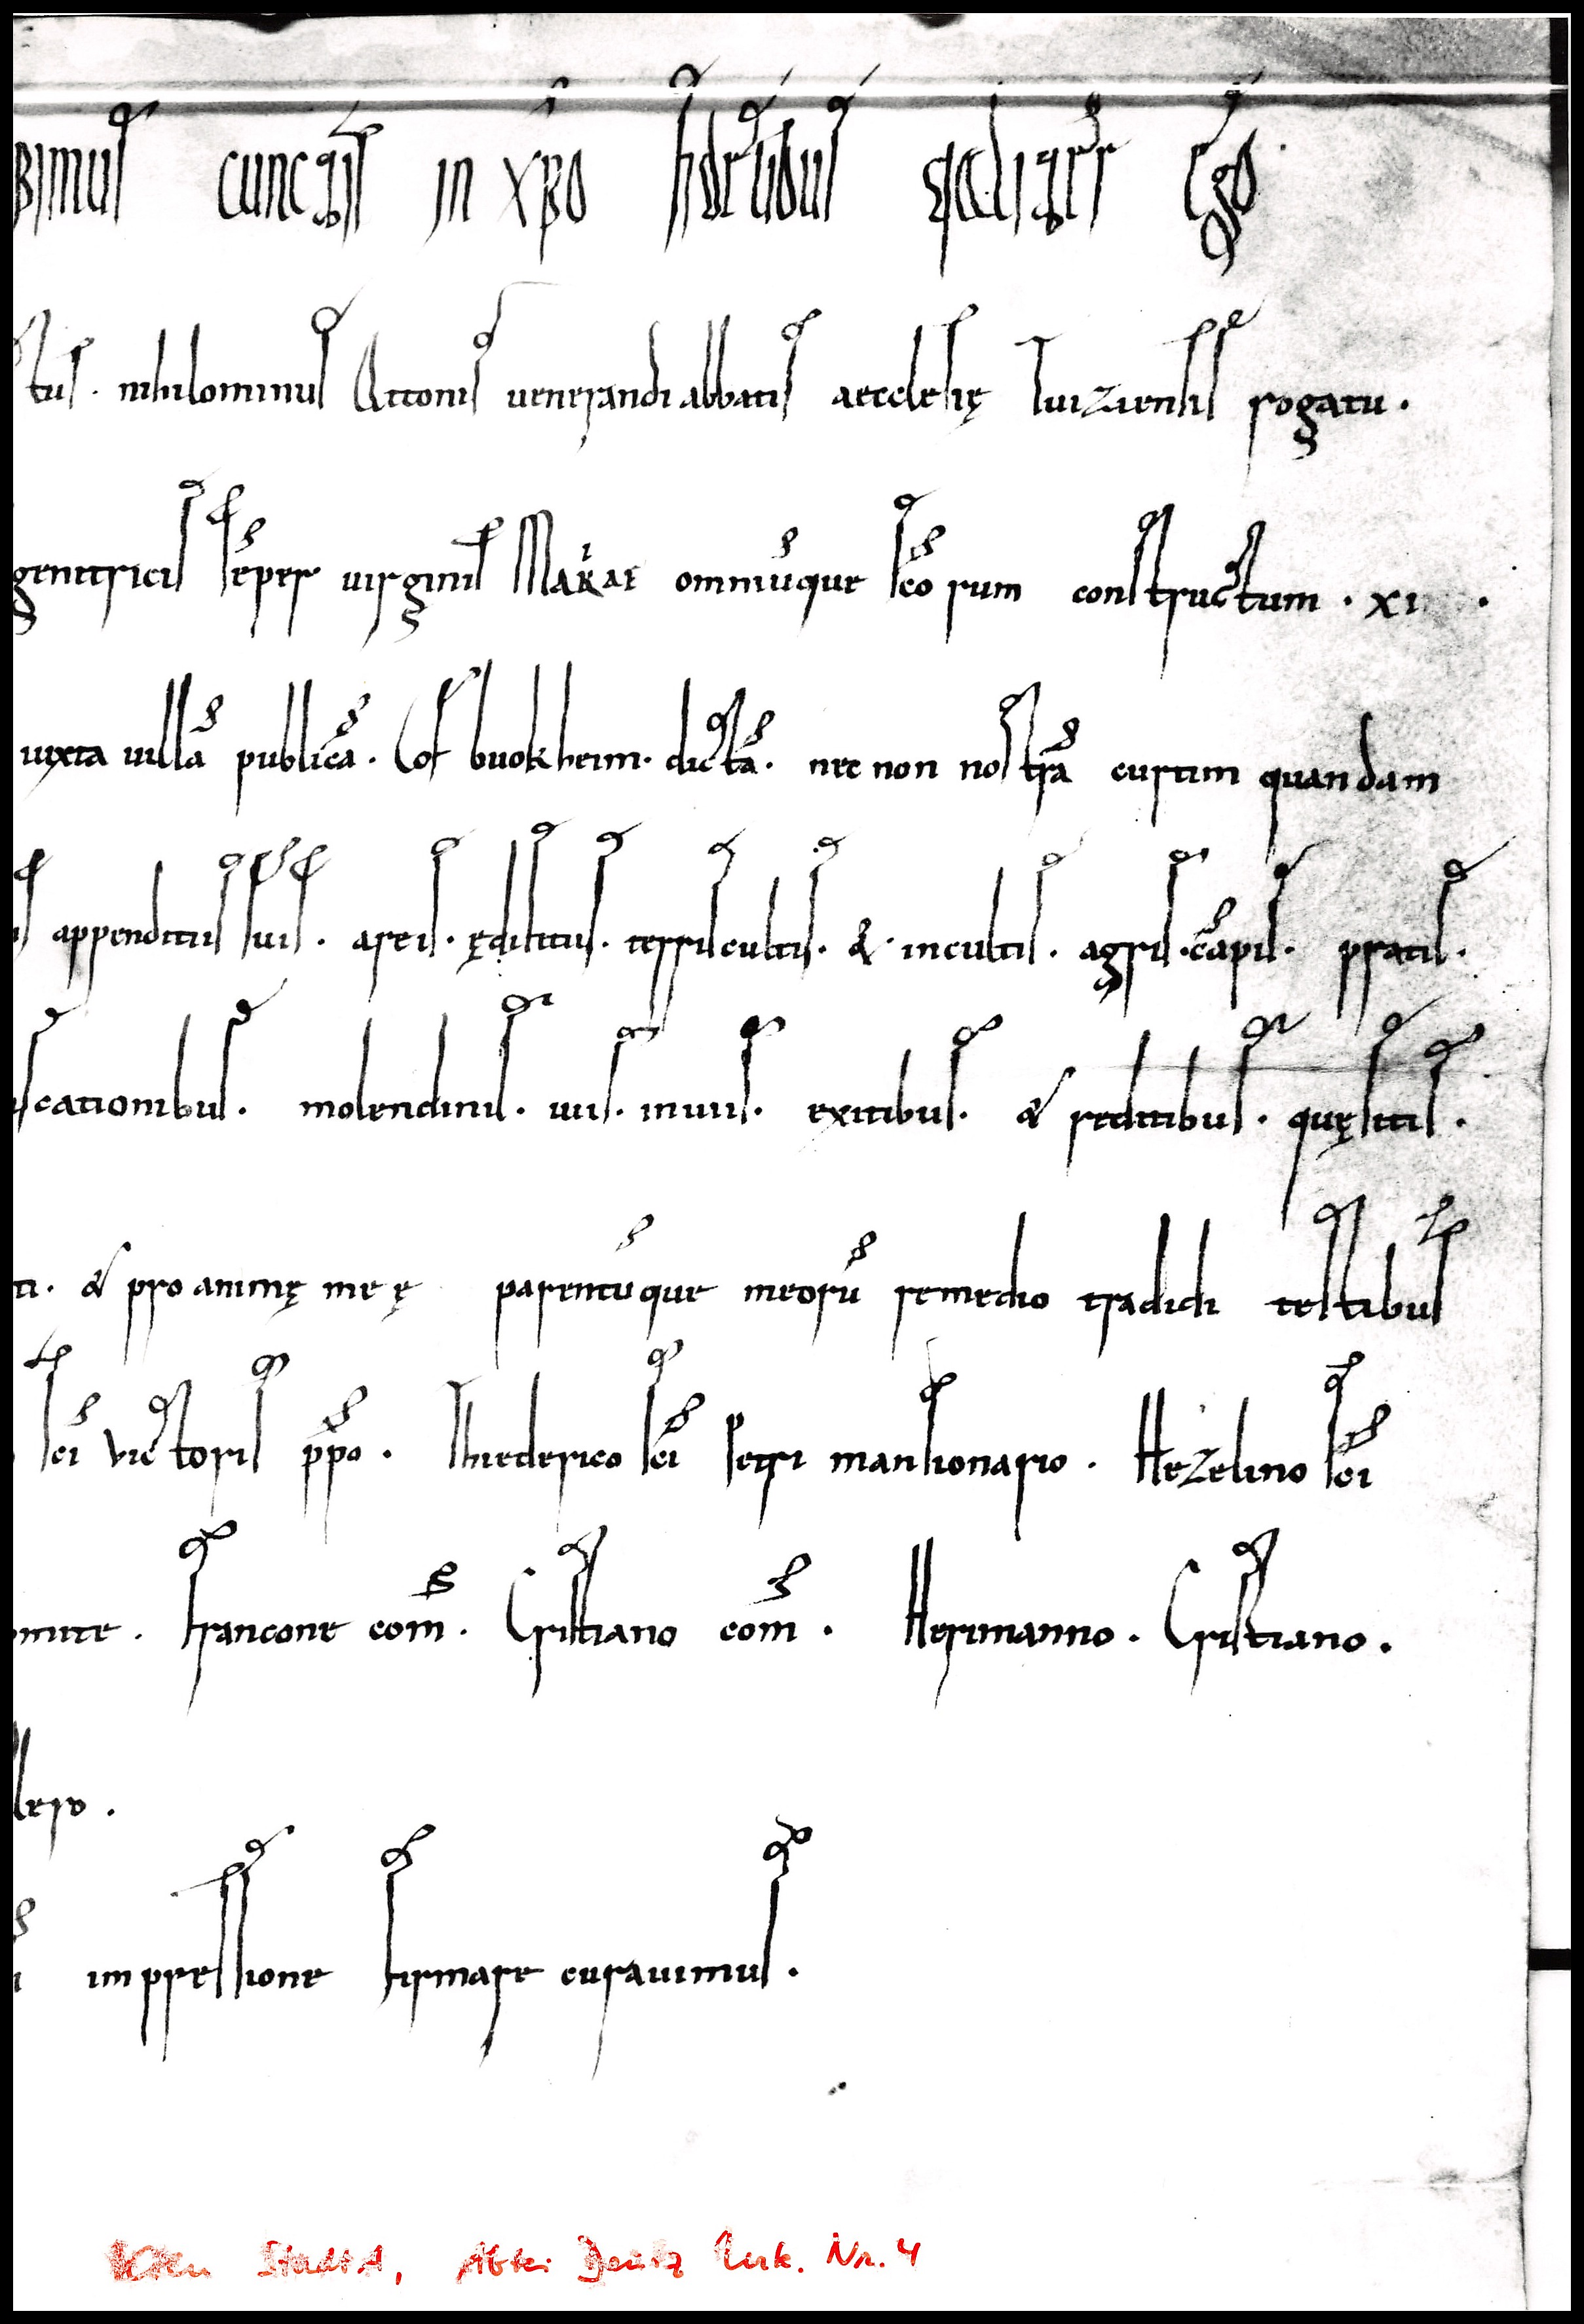 bimus cunctis in xpo fidelibus qualiter Ego
tus. nihilominus Attonis uenerandi abbatis aecclesię Tuiziensis rogatu.
genitricis sēper uirginis MaRiae omniūque scō rum constructum . XI
iuxta uillā publicā. Cof buokheim. dictā. nec non nostrā curtim quandam
appenditiis suis. areis. ędifitiis. terris cultis. & incultis. agris. cāpis. pratis.
scationibus. molendinis. uiis. inuiis. exitibus. & reditibus. quęsitis.
ti. & pro animę meę parentūque meorū remedio tradidi testibus
scī victoris pp̄o. Thiederico scī Petri mansionario. Hezelino scī
omite. Francone com̄. Cristiano com̄. Herimanno. Cristiano.
lero.
i impressione firmare curauimus.
Köln StadtA, Abtei Deutz Urk. Nr. 4